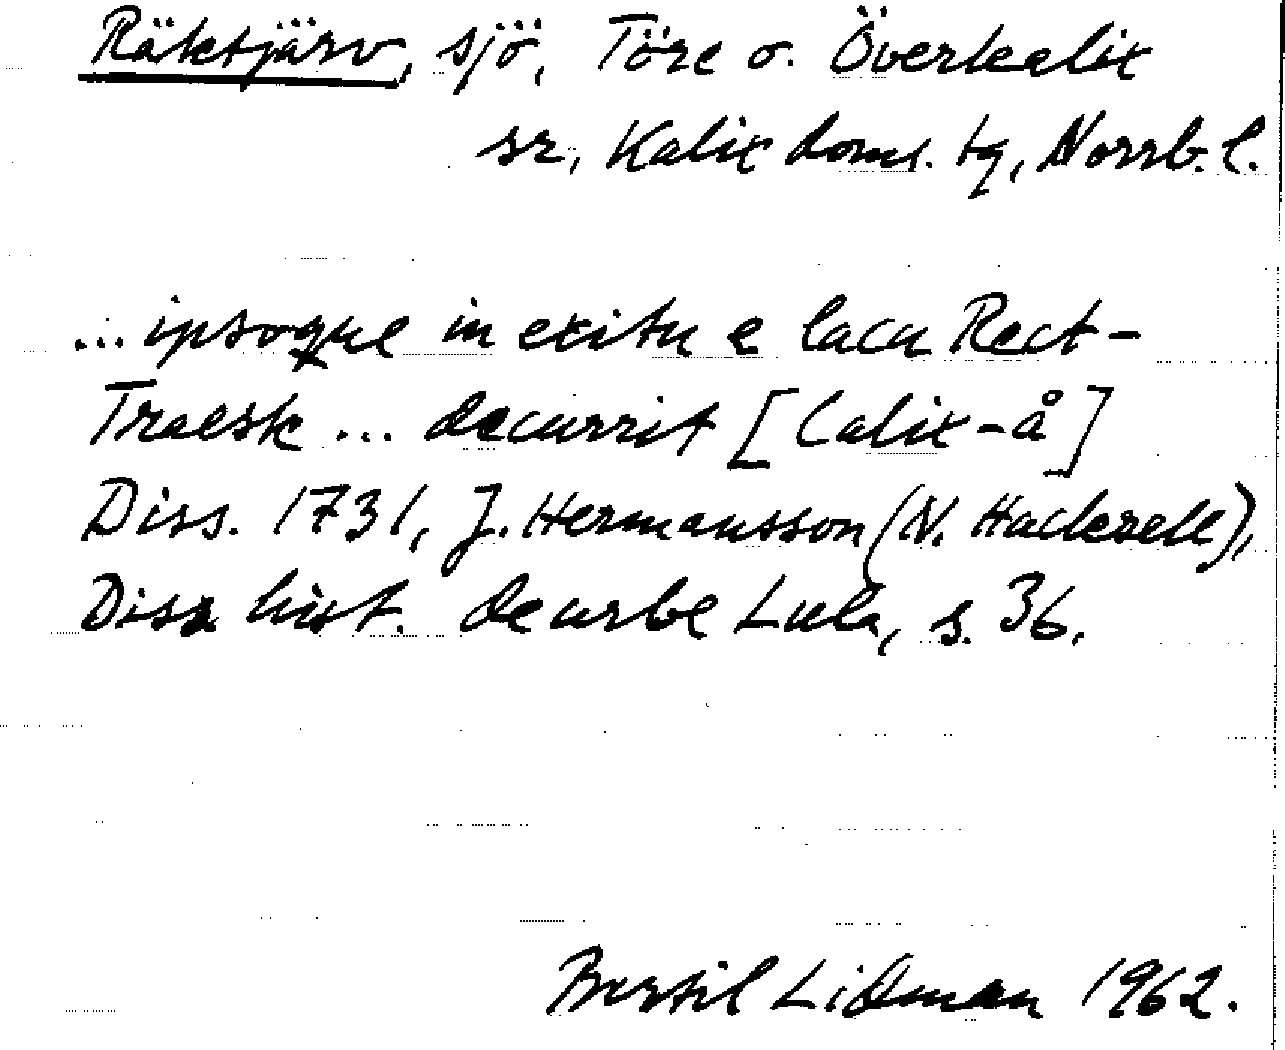 Räktjärv, sjö, Töre o. Överkalix
sr, Kalix doms. tg, Norrb. l.
... ipsoque in exitu e lacu Rect-
Traesk ... decurrit [Calix-å]
Diss. 1731, J. Hermansson (N. Hackzell),
Diss. hist. de urbe Lula, s. 36.
Bertil Lidman 1962.